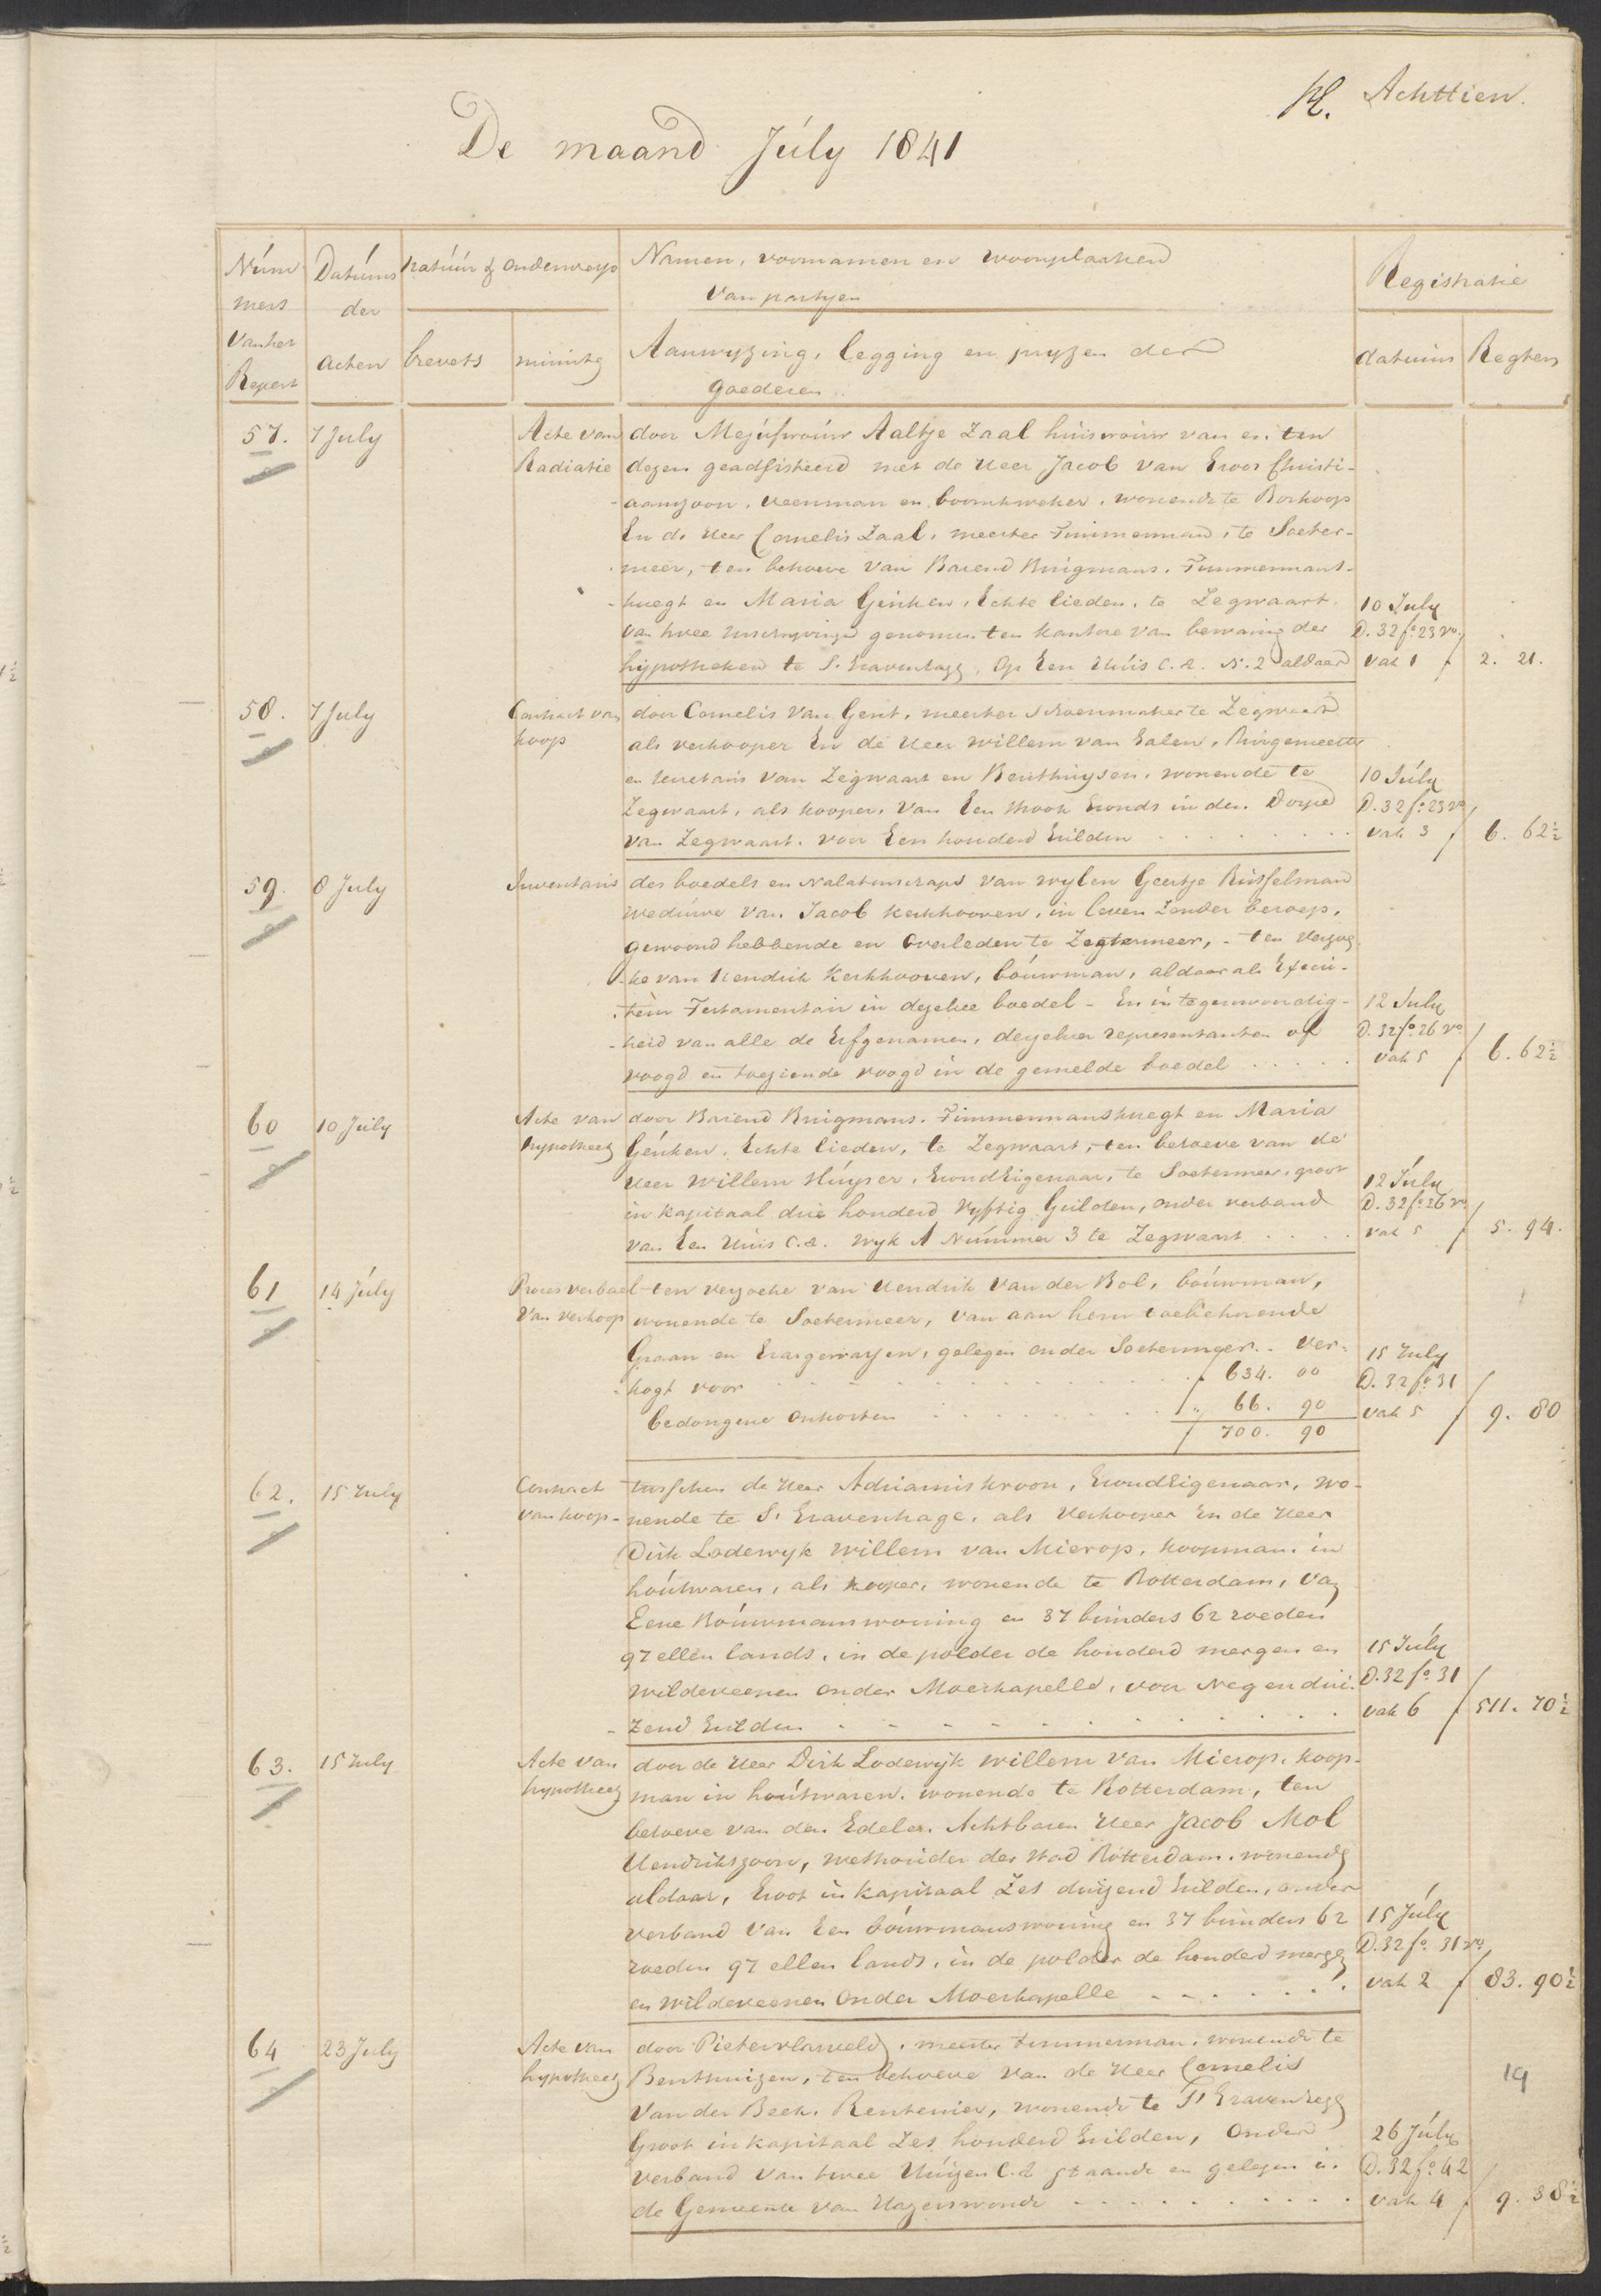 Achttien.
De maand July 1841
Num
mers
van het
Repert
Datums
der
acten
natuur & onderwerp
brevets
minute
Namen, voornamen en woonplaatsen
van partyen
Aanwyzing, legging en pryzen der
goederen
Registratie
datums
Regten
57.
7 July
Acte van
Radiatie
door Mejufvrouw Aaltje Zaal huisvrouw van en ten
dezen geadsisteerd met de Heer Jacob van Eroos Christi-
aanszoon, veenman en boomkweker, wonende te Boskoop
En de Heer Cornelis Zaal, meester Timmerman, te Soeter-
meer, ten behoeve van Barend Bruigmans, Timmermans-
knegt en Maria Genken, Echte lieden, te Zegwaart,
van twee inschryvingen genomen ten kantore van bewaring der
hypotheken te S. Gravenhage, op Een Huis c.a. N. 2 aldaar
10 July
D. 32 fo. 23 vo.
vak 1 f
2. 21.
58.
7 July
Contract van
koop
door Cornelis van Gent, meester schoenmaker te Zegwaart
als verkooper En de Heer Willem van Galen, Burgemeester
en secretaris van Zegwaart en Benthuysen, wonende te
Zegwaart, als kooper, van Een strook Gronds in den Dorpe
van Zegwaart, voor Een honderd Gulden
10 July
D. 32 fo. 23 vo
vak 3 f
6. 62½
59.
8 July
Inventaris
des boedels en Nalatenschaps van wylen Geertje Russelman
weduwe van Jacob Kerkhooven, in leven zonder beroep,
gewoond hebbende en Overleden te Zegtermeer, - ten verzoe-
ke van Hendrik Kerkhooven, bouwman, aldaar als Execu-
teur Testamentair in dezelve boedel - En in tegenwoordig-
heid van alle de Erfgenamen, derzelver representanten of
voogd en toeziende voogd in de gemelde boedel
12 July
D. 32 fo. 26 vo
vak 5 f
6. 62½
60
10 July
Acte van
hypotheek
door Barend Bruigmans, Timmermansknegt en Maria
Genken, Echte lieden, te Zegwaart, ten behoeve van de
Heer Willem Huyser, GrondEigenaar, te Soetermeer, groot
in kapitaal drie honderd vyftig Gulden, onder verband
van Een Huis c.a. wyk A Nummer 3 te Zegwaart
12 July
D. 32 fo. 26 vo.
vak 5 f
5. 94.
61
14 July
Proces verbaal
van verkoop
ten verzoeke van Hendrik van der Bol, bouwman,
wonende te Soetermeer, van aan hem toebehorende
Graan en Grasgewassen, gelegen onder Soetermeer. - Ver-
kogt voor f 634. 00
bedongene onkosten " 66. 90
f 700. 90
15 July
D. 32 fo. 31
vak 5 f
9. 80
62.
15 July
Contract
van koop
tusschen de Heer Adrianus Kroon, GrondEigenaar, wo-
nende te S. Gravenhage, als Verkooper En de Heer
Dirk Lodewyk Willem van Mierop, koopman in
houtwaren, als kooper, wonende te Rotterdam, van
Eene Bouwmanswoning en 37 bunders 62 roeden
97 ellen lands, in de polder de honderd mergen en
Wildeveenen onder Moerkapelle, voor Negen dui-
zend Gulden
15 July
D. 32 fo. 31
vak 6 f
511. 70½
63.
15 July
Acte van
hypotheek
door de Heer Dirk Lodewyk Willem van Mierop, koop-
man in houtwaren, wonende te Rotterdam, ten
behoeve van den Edelen Achtbaren Heer Jacob Mol
Hendrikszoon, wethouder der stad Rotterdam, wonende
aldaar, Groot in kapitaal Zes duizend Gulden, onder
verband van Een bouwmanswoning en 37 bunders 62
roeden 97 ellen lands, in de polder de honderd mergen
en wildeveenen onder Moerkapelle
15 July
D. 32 fo. 31 vo.
vak 2 f
83. 90½
64
23 July
Acte van
hypotheek
door Pieter Vlasveld, meester timmerman, wonende te
Benthuizen, ten behoeve van de Heer Cornelis
van der Beek, Rentenier, wonende te S' Gravenhage
Groot in kapitaal Zes honderd Gulden, Onder
verband van twee Huizen C.a staande en gelegen in
de Gemeente van Hazerswoude
26 July
D. 32 fo. 42
vak 4 f
9. 38½
19